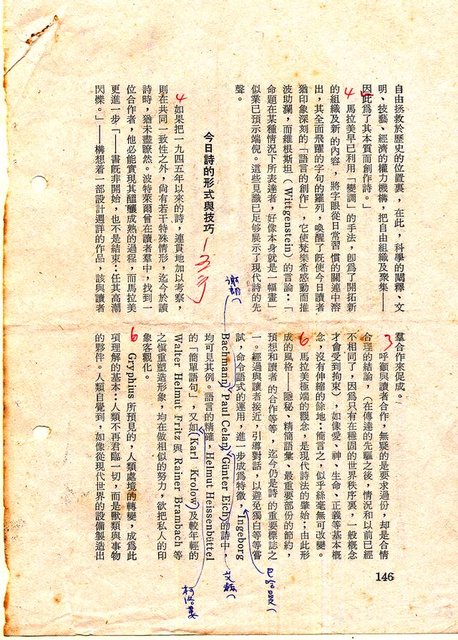 自由拯救於歷史的位置裏,在此,科學的闡釋、文
明、技藝、經濟的權力機構,把自由組織及聚集——
因此為了其本質而創作詩。
4 馬拉美早已利用「變調」的手法,卽為了開拓新
的組織及新的內容,將字眼從日常習慣的關連中溶
出,其全面飛躍的字句的羅列,喚醒了旣使今日讀者
猶印象深刻的「語言的創作」,它使梵樂希感動而推
波助瀾,而維根斯坦(Wittgenstein)的言論:「
命題在某種情況下所表達者,好像本身就是一幅畫」
似業已預示端倪。這些見識已足够展示了現代詩的先
聲。
今日詩的形式與技巧
4 如果把一九四五年以來的詩,連貫地加以考察,
則在共同一致性之外,尚有若干特殊情形,迄今於該
詩時,猶未盡瞭然。波特萊爾曾在讀者羣中,找到一
位合作者,他必能實現其醞釀成熟的過程,而馬拉美
更進一步「——書旣非開始,也不是結束:任其高潮
閃爍。」——構想着一部設計週詳的作品,該與讀者
羣合作來促成。
3 呼籲與讀者合作,無疑的是要求過份,却是合情
合理的結論,(在傳達的先驅之後,情況和以前已經
不相同了,因為只有在穩固的世界秩序裏,一般概念
才會受到拘束),如像愛、神、生命、正義等基本概
念,沒有伸縮的餘地:簡言之,似乎絲毫無可改變。
6 馬拉美極端的觀念,是現代詩法的肇始;由此形
成的風格——隱秘、精簡語彙、最重要部份的節約,
預想和讀者的合作等等,迄今仍是詩的重要標誌之
一。經過與讀者接近,引導對話,以避免獨白等等嘗
試,命令語式的運用,進一步成為特徵,Ingeborg
Bachmann, Paul Celan, Günter Eich的詩中,
均可見其例。語言的精確,Helmut Heissenbüttel
的「簡單語句」,又如Karl Krolow及較年輕的
Walter Helmut Fritz與Rainer Brambach等
之慎重塑造形象,均在做相似的努力,欲把私人的印
象客觀化。
6 Gryphius所預見的,人類處境的轉變,成為此
項理解的基本:人類不再君臨一切,而是獸類與事物
的夥伴。人類自覺到,如像從現代世界的設備製造出
146